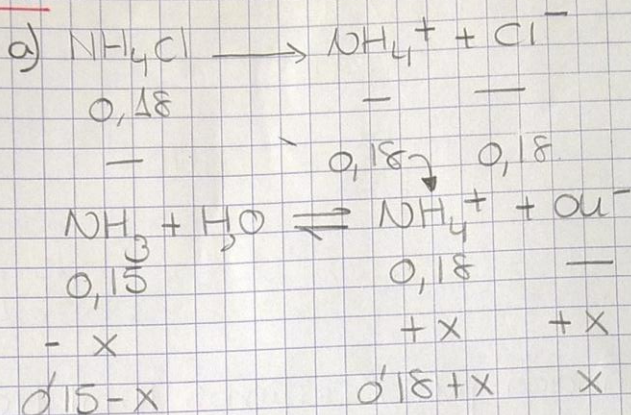 a) NH₄Cl ⟶ NH₄⁺ + Cl⁻
0,18 — —
— 0,18 0,18
NH₃ + H₂O ⇌ NH₄⁺ + OH⁻
0,15 0,18 —
- x + x + x
0'15-x 0'18+x x